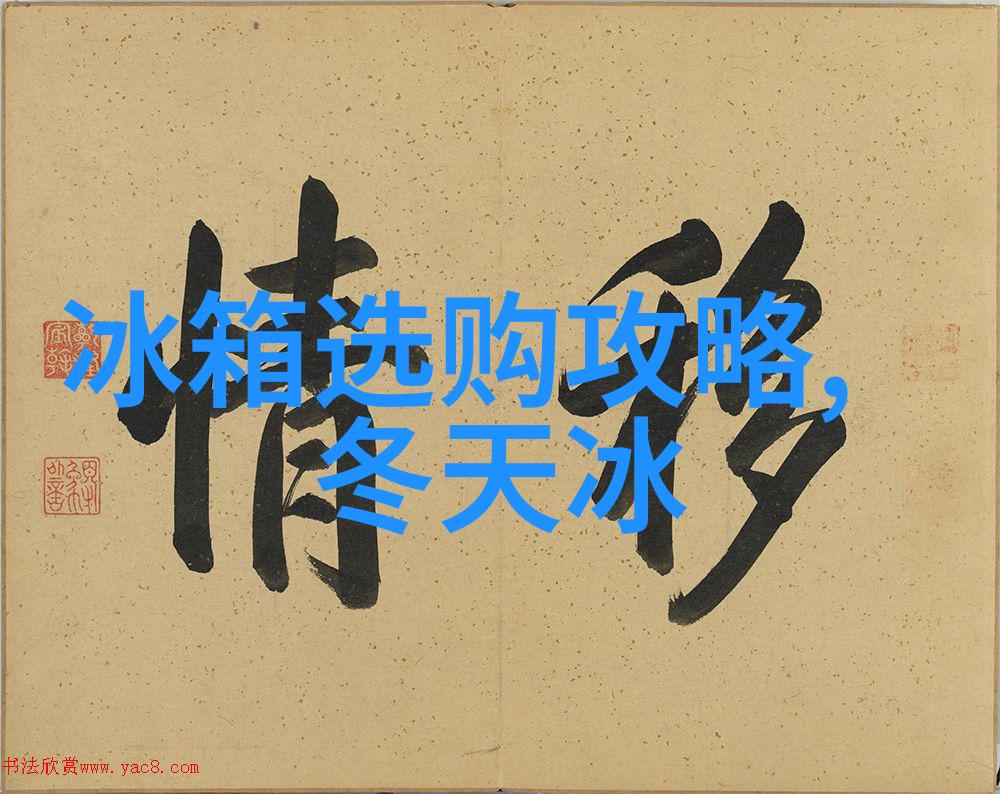 移情
冰箱选购攻略,
冬天冰
书法欣赏www.yac8.com